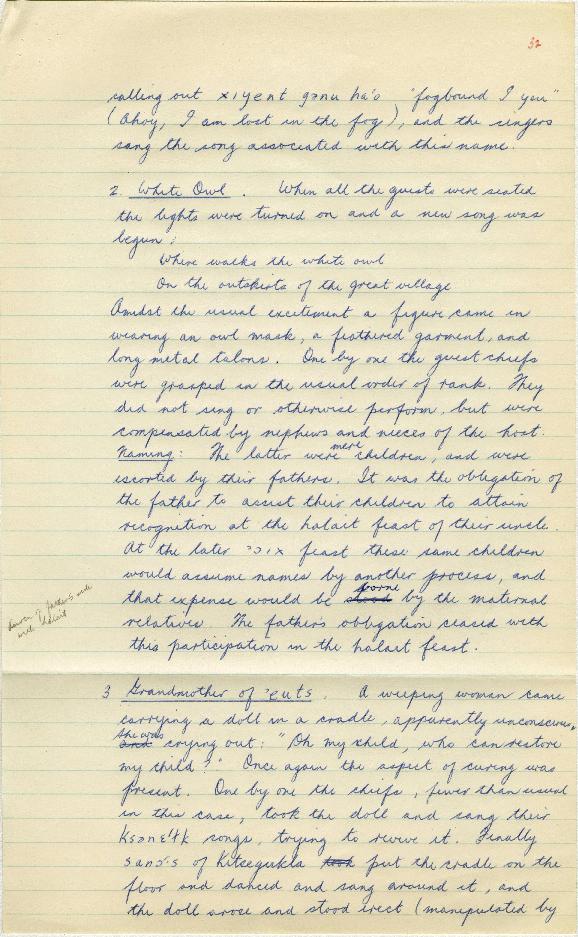 32
calling out xıyent gǝnu ha'o "fogbound I you"
(Ahoy, I am lost in the fog), and the singers
sang the song associated with this name.
2. White Owl. When all the guests were seated
the lights were turned on and a new song was
begun:
Where walks the white owl
On the outskirts of the great village
Amidst the usual excitement a figure came in
wearing an owl mask, a feathered garment, and
long metal talons. One by one the guest chiefs
were grasped in the usual order of rank. They
did not sing or otherwise perform, but were
compensated by nephews and nieces of the host.
Naming: The latter were mere children, and were
escorted by their fathers. It was the obligation of
the father to assist their children to attain
recognition at the halait feast of their uncle.
At the later feast these same children
would assume names by another process, and
that expense would be stood borne by the maternal
relatives. The father's obligation ceased with
this participation in the halait feast.
father's side
halait
3 Grandmother of 'euts. A weeping woman came
carrying a doll in a cradle, apparently unconscious,
and she was crying out: "Oh my child, who can restore
my child?" Once again the aspect of curing was
present. One by one the chiefs, fewer than usual
in this case, took the doll and sang their
songs, trying to revive it. Finally
of Kitsegukla took put the cradle on the
floor and danced and sang around it, and
the doll arose and stood erect (manipulated by